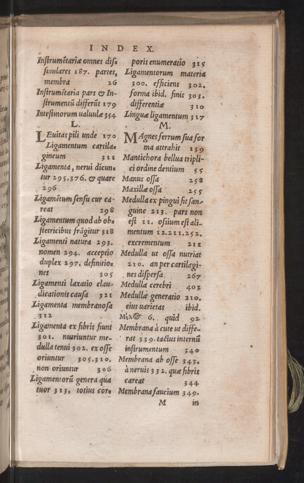 INDEX.
Instrumẽtariæ omnes dis-
similares 187. partes,
membra 26
Instrumẽtaria pars & In-
strumentũ differũt 179
Intestinorum valuulæ 354
L.
LEuitas pili unde 170
Ligamentum cartila-
gineum 321
Ligamenta, nerui dicun-
tur 295.376. & quare
296
Ligamẽtum sensu cur ca-
reat 298
Ligamentum quod ab ob-
stetricibus frãgitur 318
Ligamenti natura 293.
nomen 294. acceptio
duplex 297. definitio.
net 305
Ligamenti laxatio clau-
dicationis causa 321
Ligamenta membranosa
312
Ligamenta ex fibris fiunt
301. nutriuntur me-
dulla tenui 302. ex osse
oriuntur 305.310.
non oriuntur 306
Ligamentorũ genera qua
tuor 323. totius cor-
poris enumeratio 315
Ligamentorum materia
300. efficiens 302.
forma ibid. finis 303.
differentiæ 310
Linguæ ligamentum 317
M.
MAgnes ferrum sua for
ma attrahit 159
Mantichora bellua tripli-
ci ordine dentium 55
Manus ossa 258
Maxillæ ossa 255
Medulla ex pingui fit san-
guine 213. pars non
est 11. ossium est ali-
mentum 12.211.252.
excrementum 212
Medulla ut ossa nutriat
210. an per cartilagi-
nes dispersa 267
Medulla cerebri 403
Medullæ generatio 210.
eius varietas ibid.
quid 92
Membrana à cute ut diffe-
rat 339. tactus internũ
instrumentum 340
Membrana ab osse 343.
à neruis 332. quæ fibris
careat 344
Membrana faucium 349.
M in